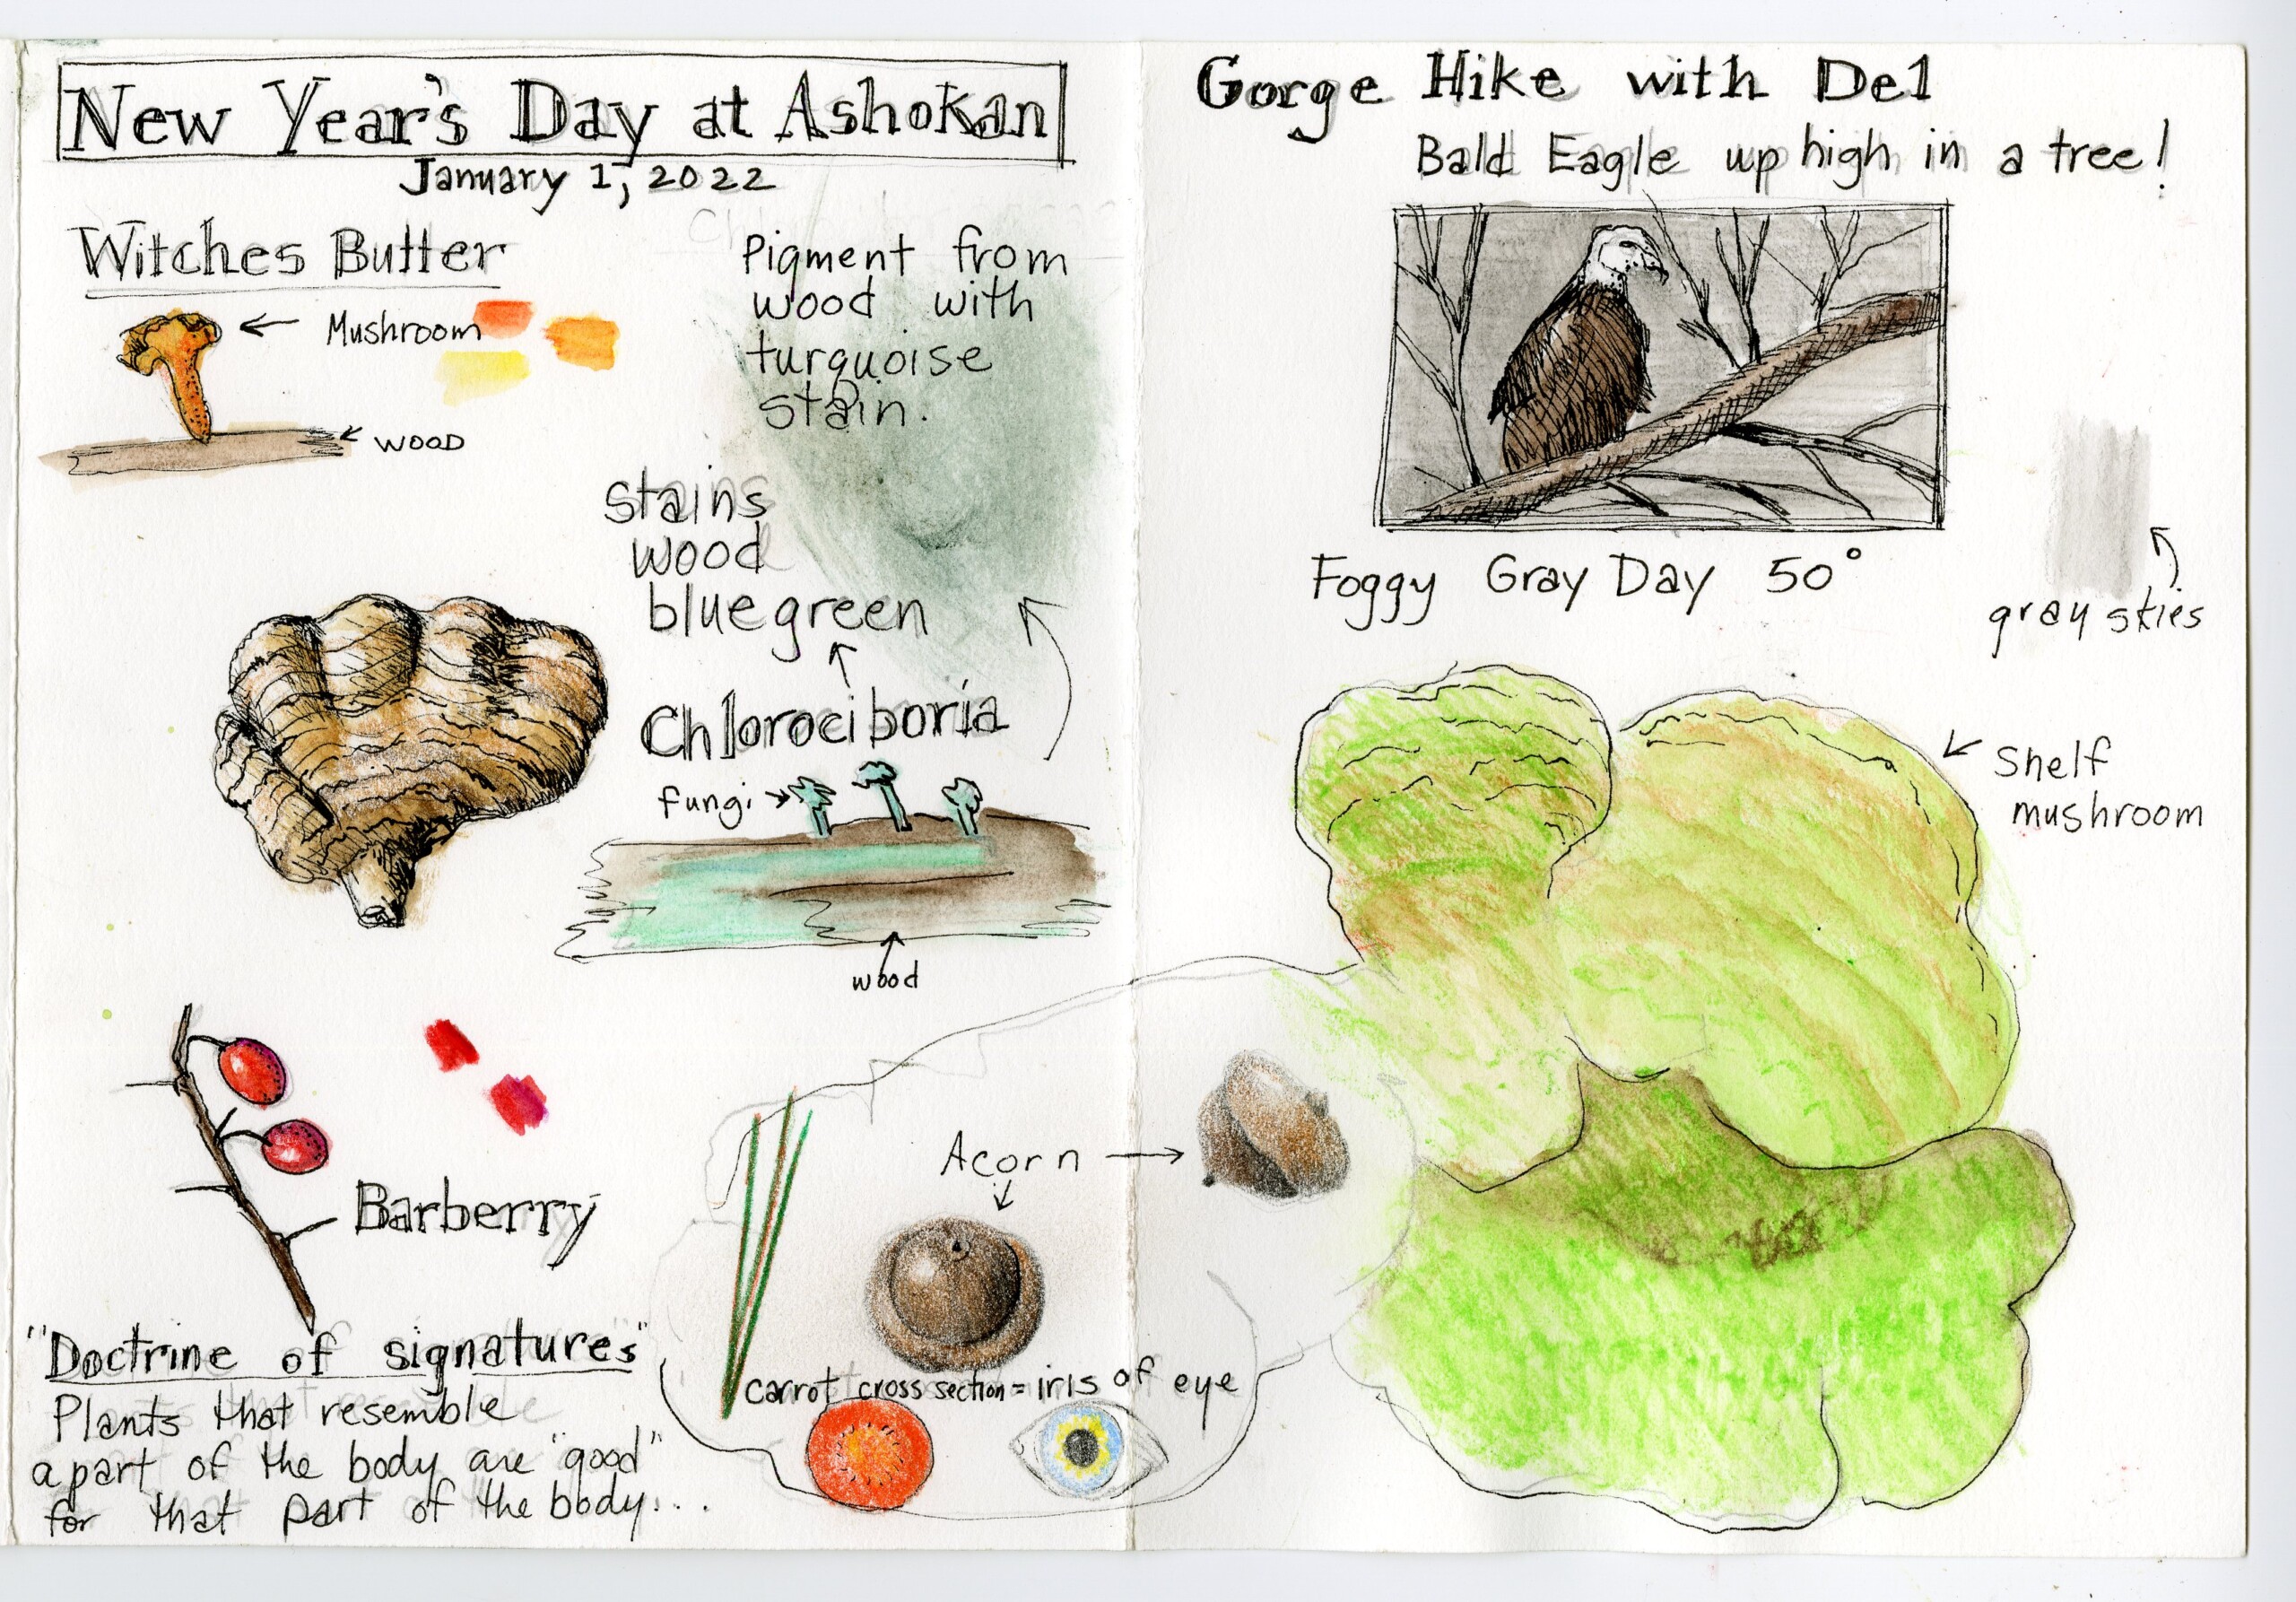 New Year's Day at Ashokan
January 1, 2022
Witches Butter
Mushroom
wood
Pigment from
wood with
turquoise
stain.
stains
wood
bluegreen
Chlorociboria
fungi
wood
Barberry
"Doctrine of signatures"
Plants that resemble
a part of the body are "good"
for that part of the body...
Acorn
carrot cross section = iris of eye
Gorge Hike with Del
Bald Eagle up high in a tree!
Foggy Gray Day 50°
gray skies
Shelf
mushroom